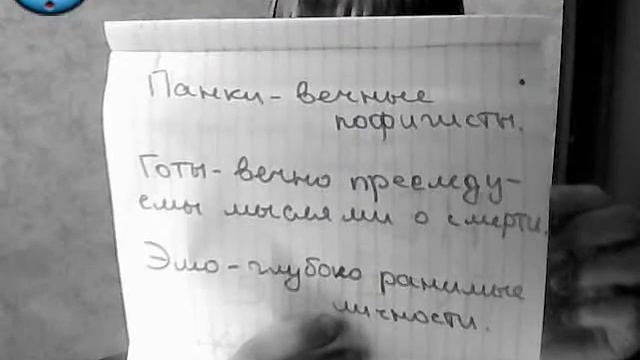 Панки - вечные
пофигисты.
Готы - вечно преследу-
емы мыслями о смерти.
Эмо - глубоко ранимые
личности.